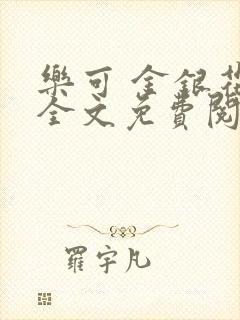 樂可 金銀花
全文免費閱
羅宇凡